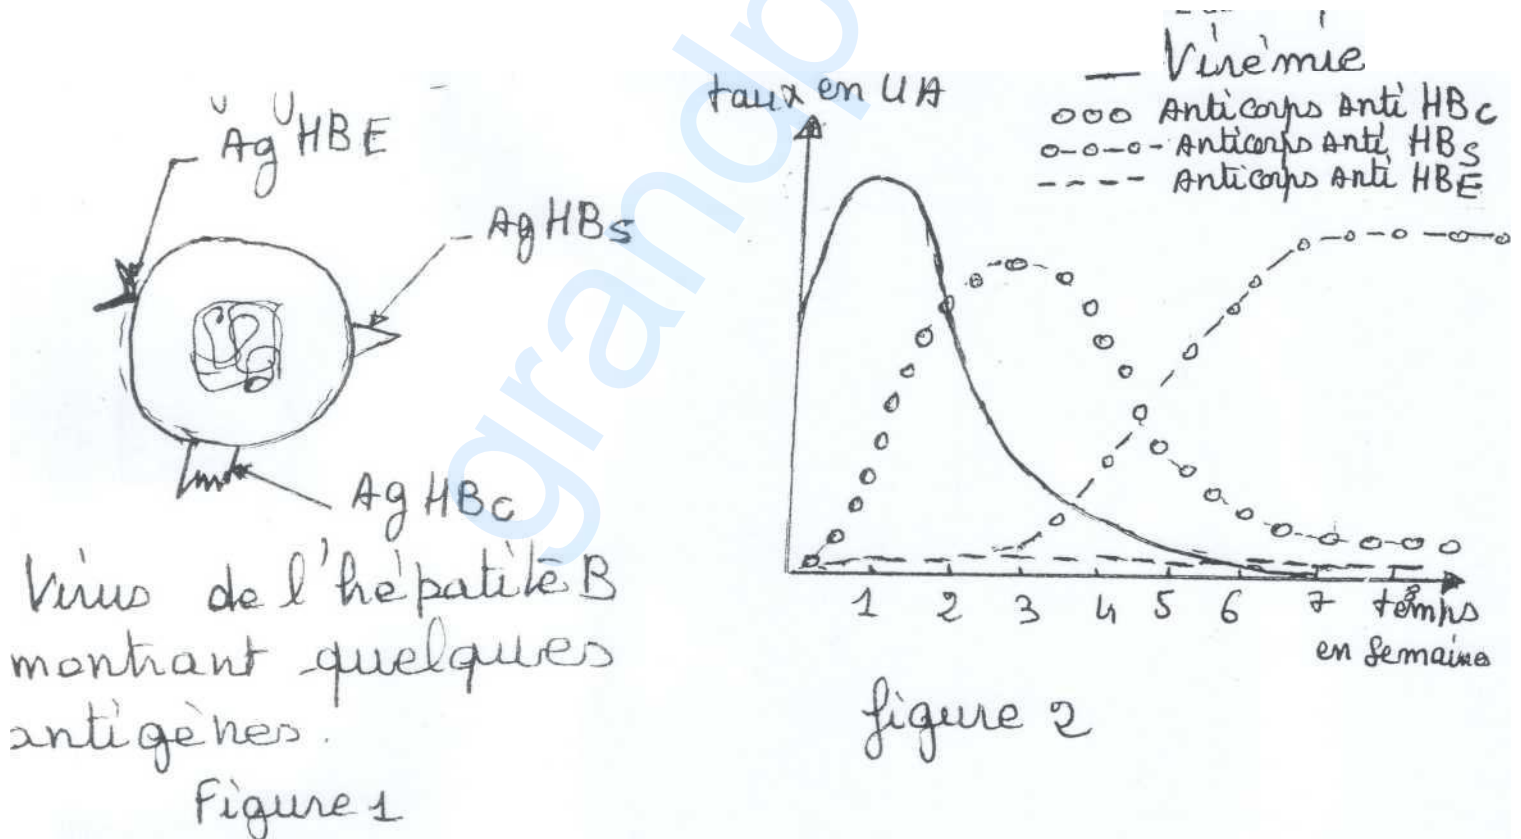 Ag HBE
Ag HBs
Ag HBc
Virus de l'hépatite B
montrant quelques
antigènes.
Figure 1
taux en UA
Virémie
Anticorps Anti HBc
Anticorps Anti HBs
Anticorps Anti HBE
1 2 3 4 5 6 7 8
temps
en Semaines
figure 2
grandp